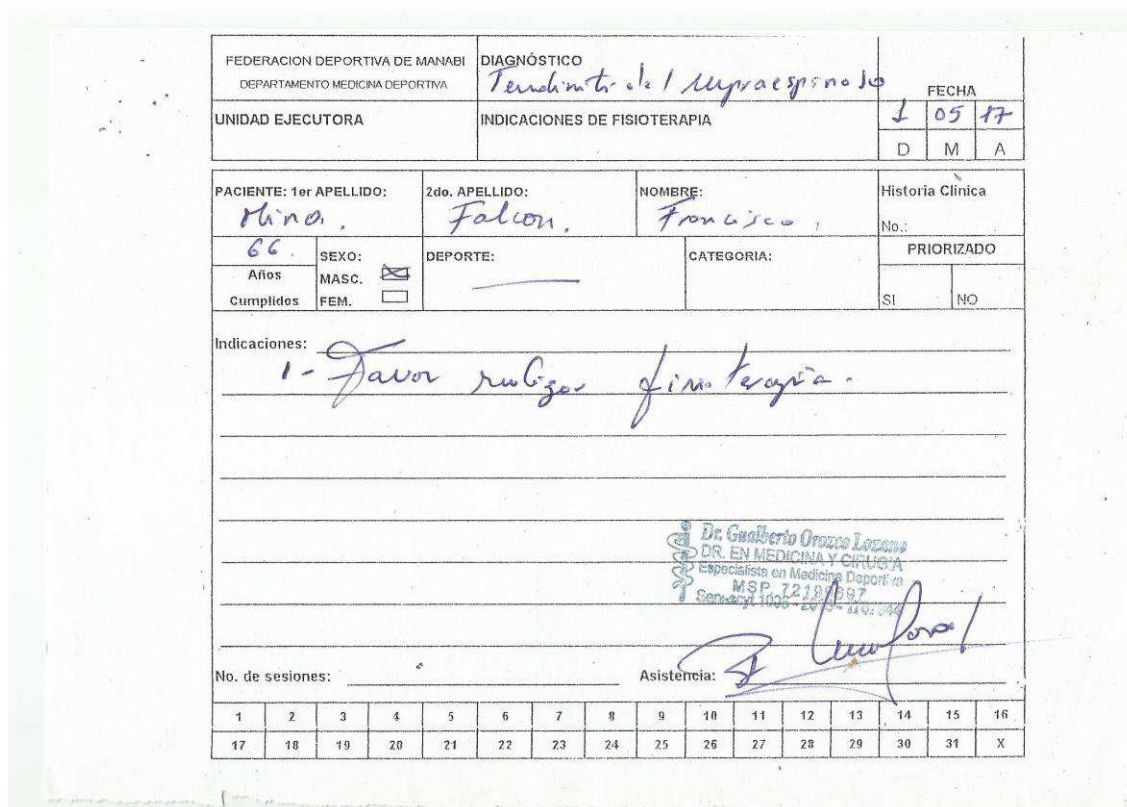 FEDERACION DEPORTIVA DE MANABI
DEPARTAMENTO MEDICINA DEPORTIVA
DIAGNÓSTICO
Tendinitis del supraespinoso
FECHA
1 05 17
D M A
UNIDAD EJECUTORA
INDICACIONES DE FISIOTERAPIA
PACIENTE: 1er APELLIDO:
2do. APELLIDO:
NOMBRE:
Historia Clínica
Falcon.
Francisco,
No.:
66.
Años
Cumplidos
SEXO:
MASC.
FEM.
DEPORTE:
CATEGORIA:
PRIORIZADO
SI NO
Indicaciones:
1- Favor realizar fisioterapia.
Dr. Gualberto Orozco Lozano
DR. EN MEDICINA Y CIRUGIA
Especialista en Medicina Deportiva
MSP
Senescyt
No. de sesiones:
Asistencia:
1 2 3 4 5 6 7 8 9 10 11 12 13 14 15 16
17 18 19 20 21 22 23 24 25 26 27 28 29 30 31 X